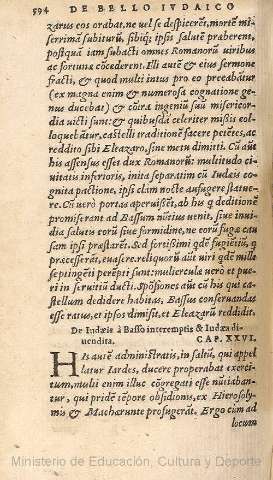 594 DE BELLO IVDAICO
zarus eos orabat, ne uel se despicerẽt, mortẽ mi-
serrimã subiturũ, sibiq; ipsi salutẽ præberent,
postquã iam subacti omnes Romanorũ uiribus
ac fortunæ cõcederent. Illi autẽ & eius sermone
fracti, & quod multi intus pro eo precabãtur
(ex magna enim & numerosa cognatione ge-
nus ducebat) & cõtra ingeniũ suũ misericor-
dia uicti sunt: & quibusdã celeriter missis col-
loquebãtur, castelli traditionẽ facere petẽtes, ac
reddito sibi Eleazaro, sine metu dimitti. Cũ autẽ
his assensus esset dux Romanorũ: multitudo ci-
uitatis inferioris, inita separatim cũ Iudæis co-
gnita pactione, ipsi clam nocte aufugere statue-
re. Cũ uerò portas aperuissẽt, ab his q̃ deditionẽ
promiserant ad Bassum nũtius uenit, siue inui-
dia salutis eorũ siue formidine, ne eorũ fugæ cau
sam ipsi præstarẽt. Sed fortissimi qdẽ fugiẽtiũ, q̃
præcesserãt, euasere. reliquorũ aũt uiri qdẽ mille
septingẽti perẽpti sunt: mulierculæ uerò et pue-
ri in seruitiũ ducti. Spõsiones aũt cũ his qui ca-
stellum dedidere habitas, Bassus conseruandas
esse ratus, et ipsos dimisit, et Eleazarũ reddidit.
De Iudæis à Basso interemptis & Iudæa di-
uendita. CAP. XXVI.
His autẽ administratis, in saltũ, qui appel
latur Iardes, ducere properabat exerci-
tum, multi enim illuc cõgregati esse nũtiabãn-
tur, qui pridẽ tẽpore obsidionis, ex Hierosoly-
mis & Macharunte profugerãt. Ergo cum ad
locum
Ministerio de Educación, Cultura y Deporte